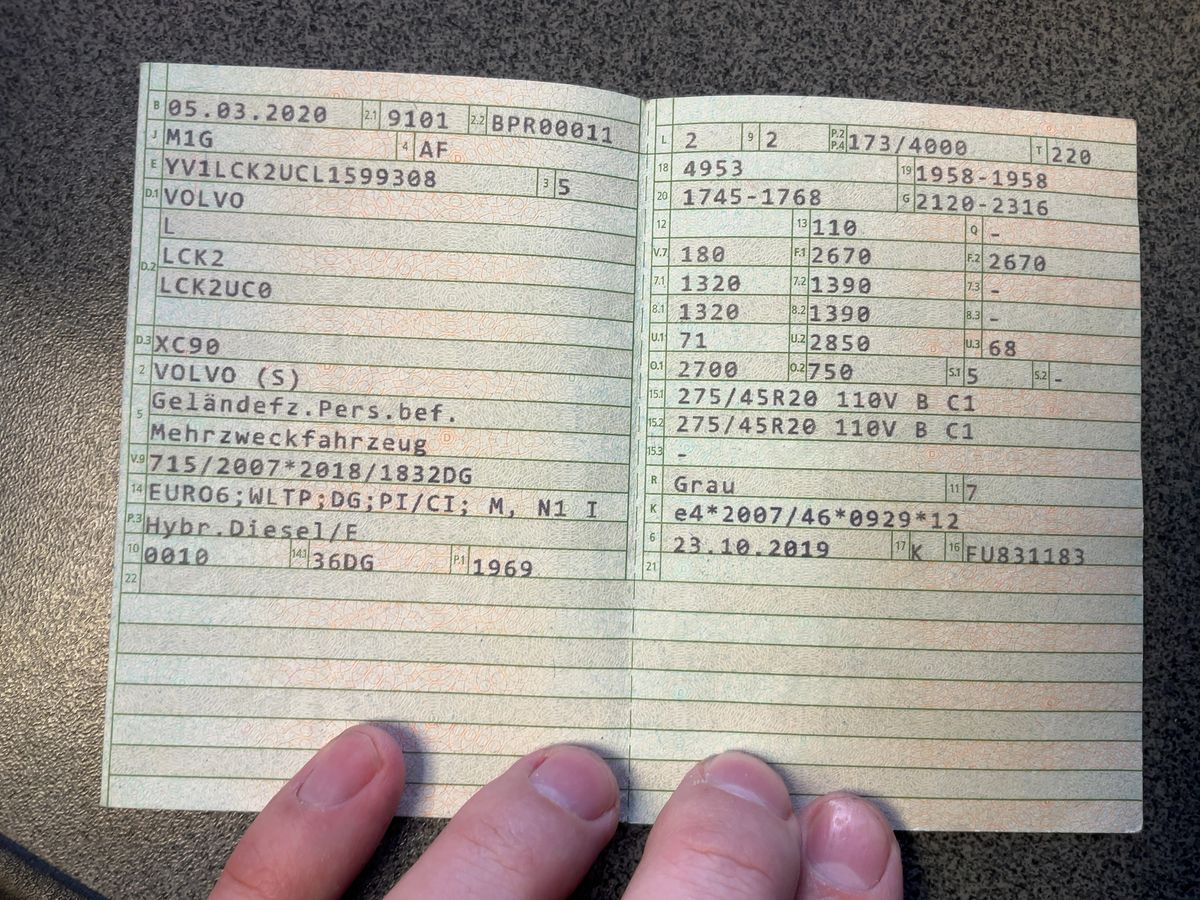 B 05.03.2020 2.1 9101 2.2 BPR00011
J M1G 4 AF
E YV1LCK2UCL1599308 3 5
D.1 VOLVO
L
D.2 LCK2
LCK2UC0
D.3 XC90
2 VOLVO (S)
5 Geländefz.Pers.bef.
Mehrzweckfahrzeug
V.9 715/2007*2018/1832DG
14 EURO6;WLTP;DG;PI/CI; M, N1 I
P.3 Hybr.Diesel/E
10 0010 14.1 36DG P.1 1969
22
L 2 9 2 P.2 P.4 173/4000 T 220
18 4953 19 1958-1958
20 1745-1768 G 2120-2316
12 13 110 Q -
V.7 180 F.1 2670 F.2 2670
7.1 1320 7.2 1390 7.3 -
8.1 1320 8.2 1390 8.3 -
U.1 71 U.2 2850 U.3 68
O.1 2700 O.2 750 S.1 5 S.2 -
15.1 275/45R20 110V B C1
15.2 275/45R20 110V B C1
15.3 -
R Grau 11 7
K e4*2007/46*0929*12
6 23.10.2019 17 K 16 FU831183
21